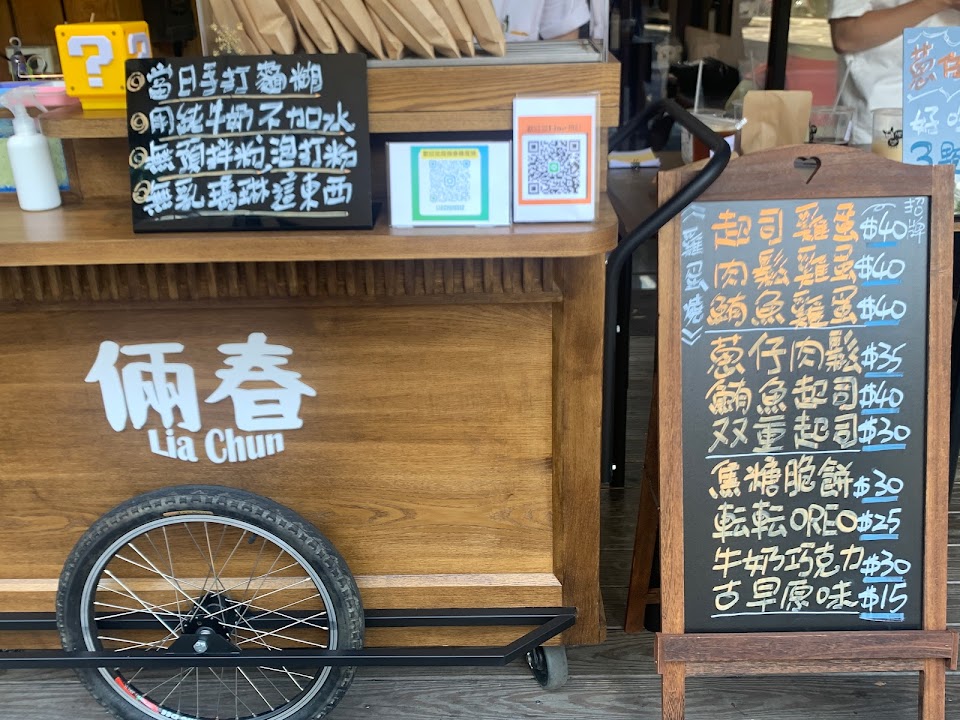 當日手打麵糊
用純牛奶不加水
無預拌粉泡打粉
無乳瑪琳這東西
俩春
Lia Chun
《雞蛋燒》
起司雞蛋 $40 招牌
肉鬆雞蛋 $40
鮪魚雞蛋 $40
蔥仔肉鬆 $35
鮪魚起司 $40
双重起司 $30
焦糖脆餅 $30
転転OREO $25
牛奶巧克力 $30
古早原味 $15
蔥仔
好吃
3顆